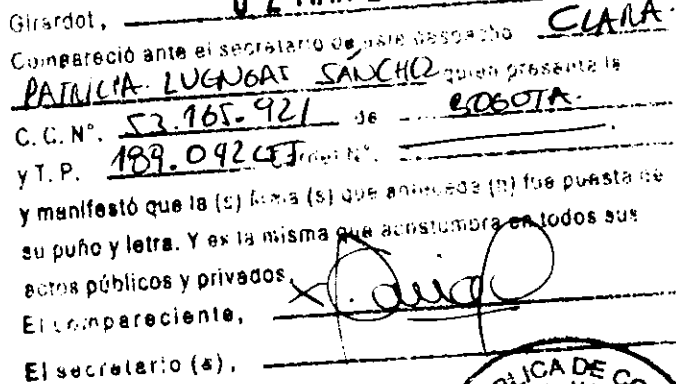 Girardot,
Compareció ante el secretario de este despacho CLARA.
PATRICIA SÁNCHEZ quien presenta la
C. C. N°. 53.165.921 de BOGOTA.
y T. P. 189.092 CSJ del N°.
y manifestó que la (s) firma (s) que antecede (n) fue puesta de
su puño y letra. Y es la misma que acostumbra en todos sus
actos públicos y privados.
El compareciente,
El secretario (a),